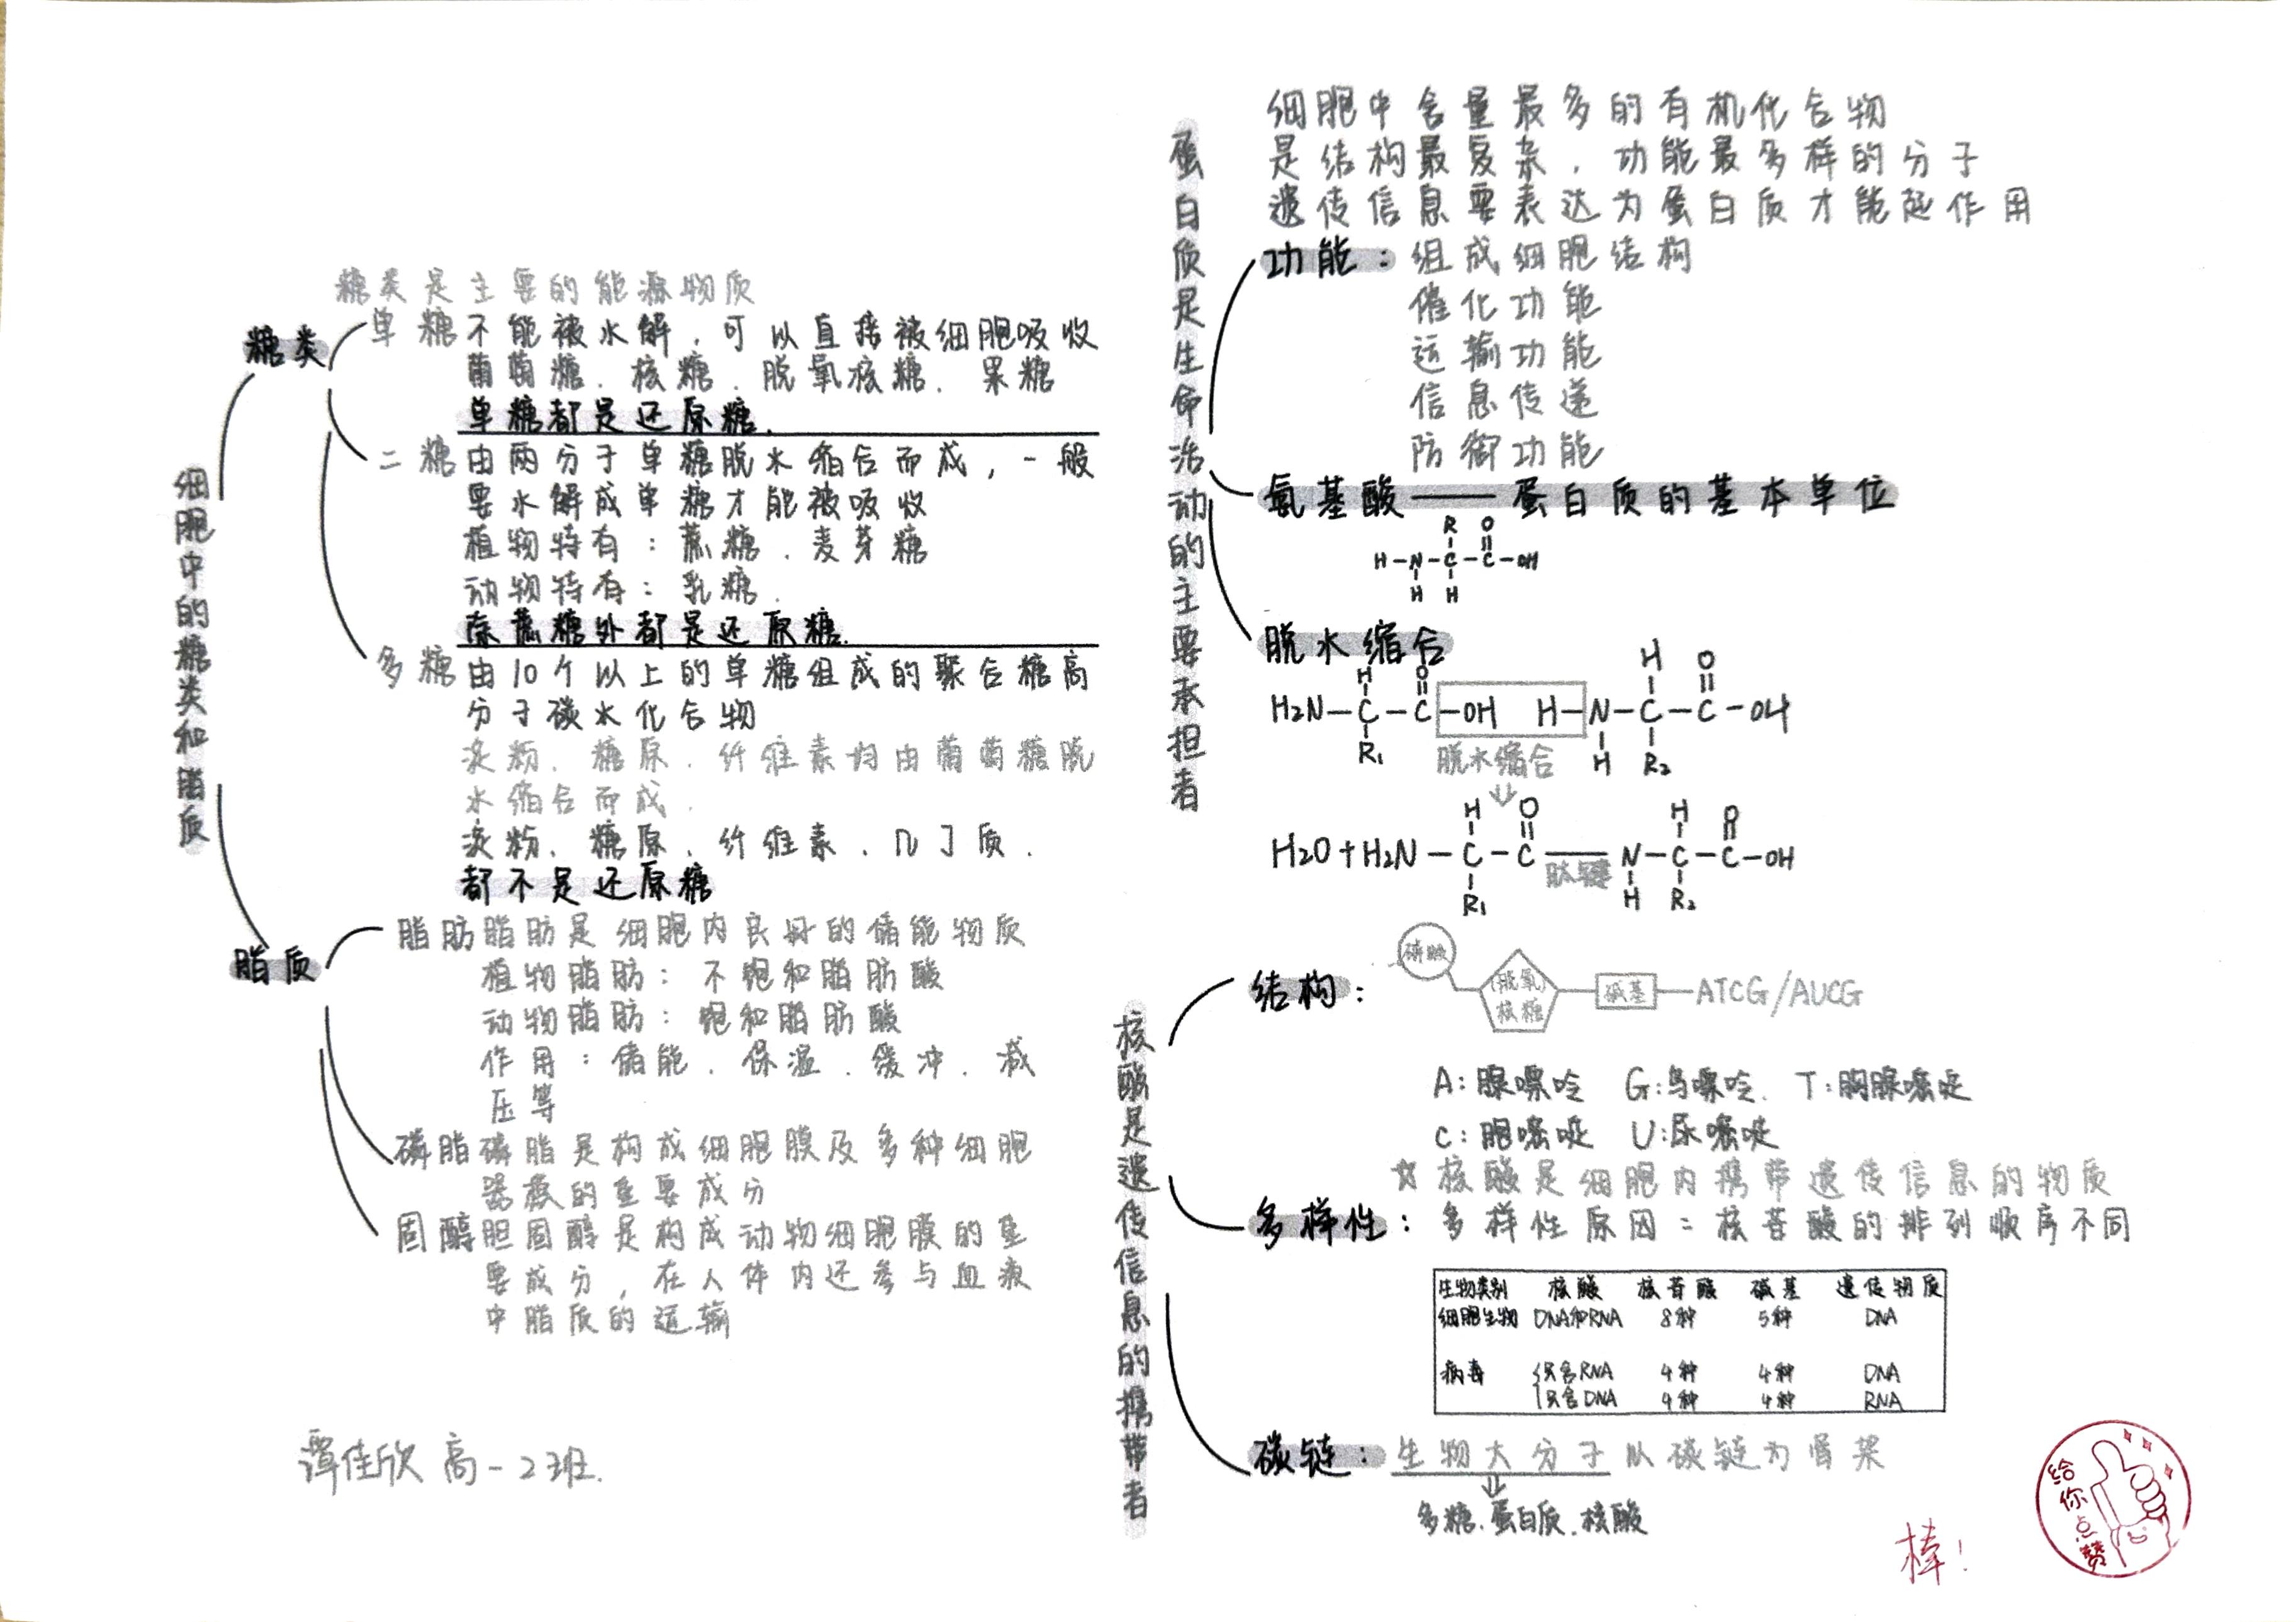 细胞中的糖类和脂质
糖类
糖类是主要的能源物质
单糖 不能被水解，可以直接被细胞吸收
葡萄糖、核糖、脱氧核糖、果糖
单糖都是还原糖.
二糖 由两分子单糖脱水缩合而成，一般
要水解成单糖才能被吸收
植物特有：蔗糖、麦芽糖
动物特有：乳糖.
除蔗糖外都是还原糖.
多糖 由10个以上的单糖组成的聚合糖高
分子碳水化合物
淀粉、糖原、纤维素均由葡萄糖脱
水缩合而成.
淀粉、糖原、纤维素、几丁质.
都不是还原糖
脂质
脂肪 脂肪是细胞内良好的储能物质
植物脂肪：不饱和脂肪酸
动物脂肪：饱和脂肪酸
作用：储能、保温、缓冲、减
压等
磷脂 磷脂是构成细胞膜及多种细胞
器膜的重要成分
固醇 胆固醇是构成动物细胞膜的重
要成分，在人体内还参与血液
中脂质的运输
谭佳欣 高一2班.
蛋白质是生命活动的主要承担者
细胞中含量最多的有机化合物
是结构最复杂，功能最多样的分子
遗传信息要表达为蛋白质才能起作用
功能：组成细胞结构
催化功能
运输功能
信息传递
防御功能
氨基酸——蛋白质的基本单位
R O
H-N-C-C-OH
H H
脱水缩合
H O H O
H2N-C-C-OH H-N-C-C-OH
R1 脱水缩合 H R2
H O H O
H2O+H2N-C-C—N-C-C-OH
R1 肽键 H R2
核酸是遗传信息的携带者
结构：磷酸 (脱氧)核糖 碱基 ATCG/AUCG
A:腺嘌呤 G:鸟嘌呤. T:胸腺嘧啶
C:胞嘧啶 U:尿嘧啶
☆核酸是细胞内携带遗传信息的物质
多样性：多样性原因：核苷酸的排列顺序不同
生物类别 核酸 核苷酸 碱基 遗传物质
细胞生物 DNA和RNA 8种 5种 DNA
病毒 只含RNA 4种 4种 DNA
只含DNA 4种 4种 RNA
碳链：生物大分子以碳链为骨架
多糖、蛋白质、核酸
棒！
给你点赞